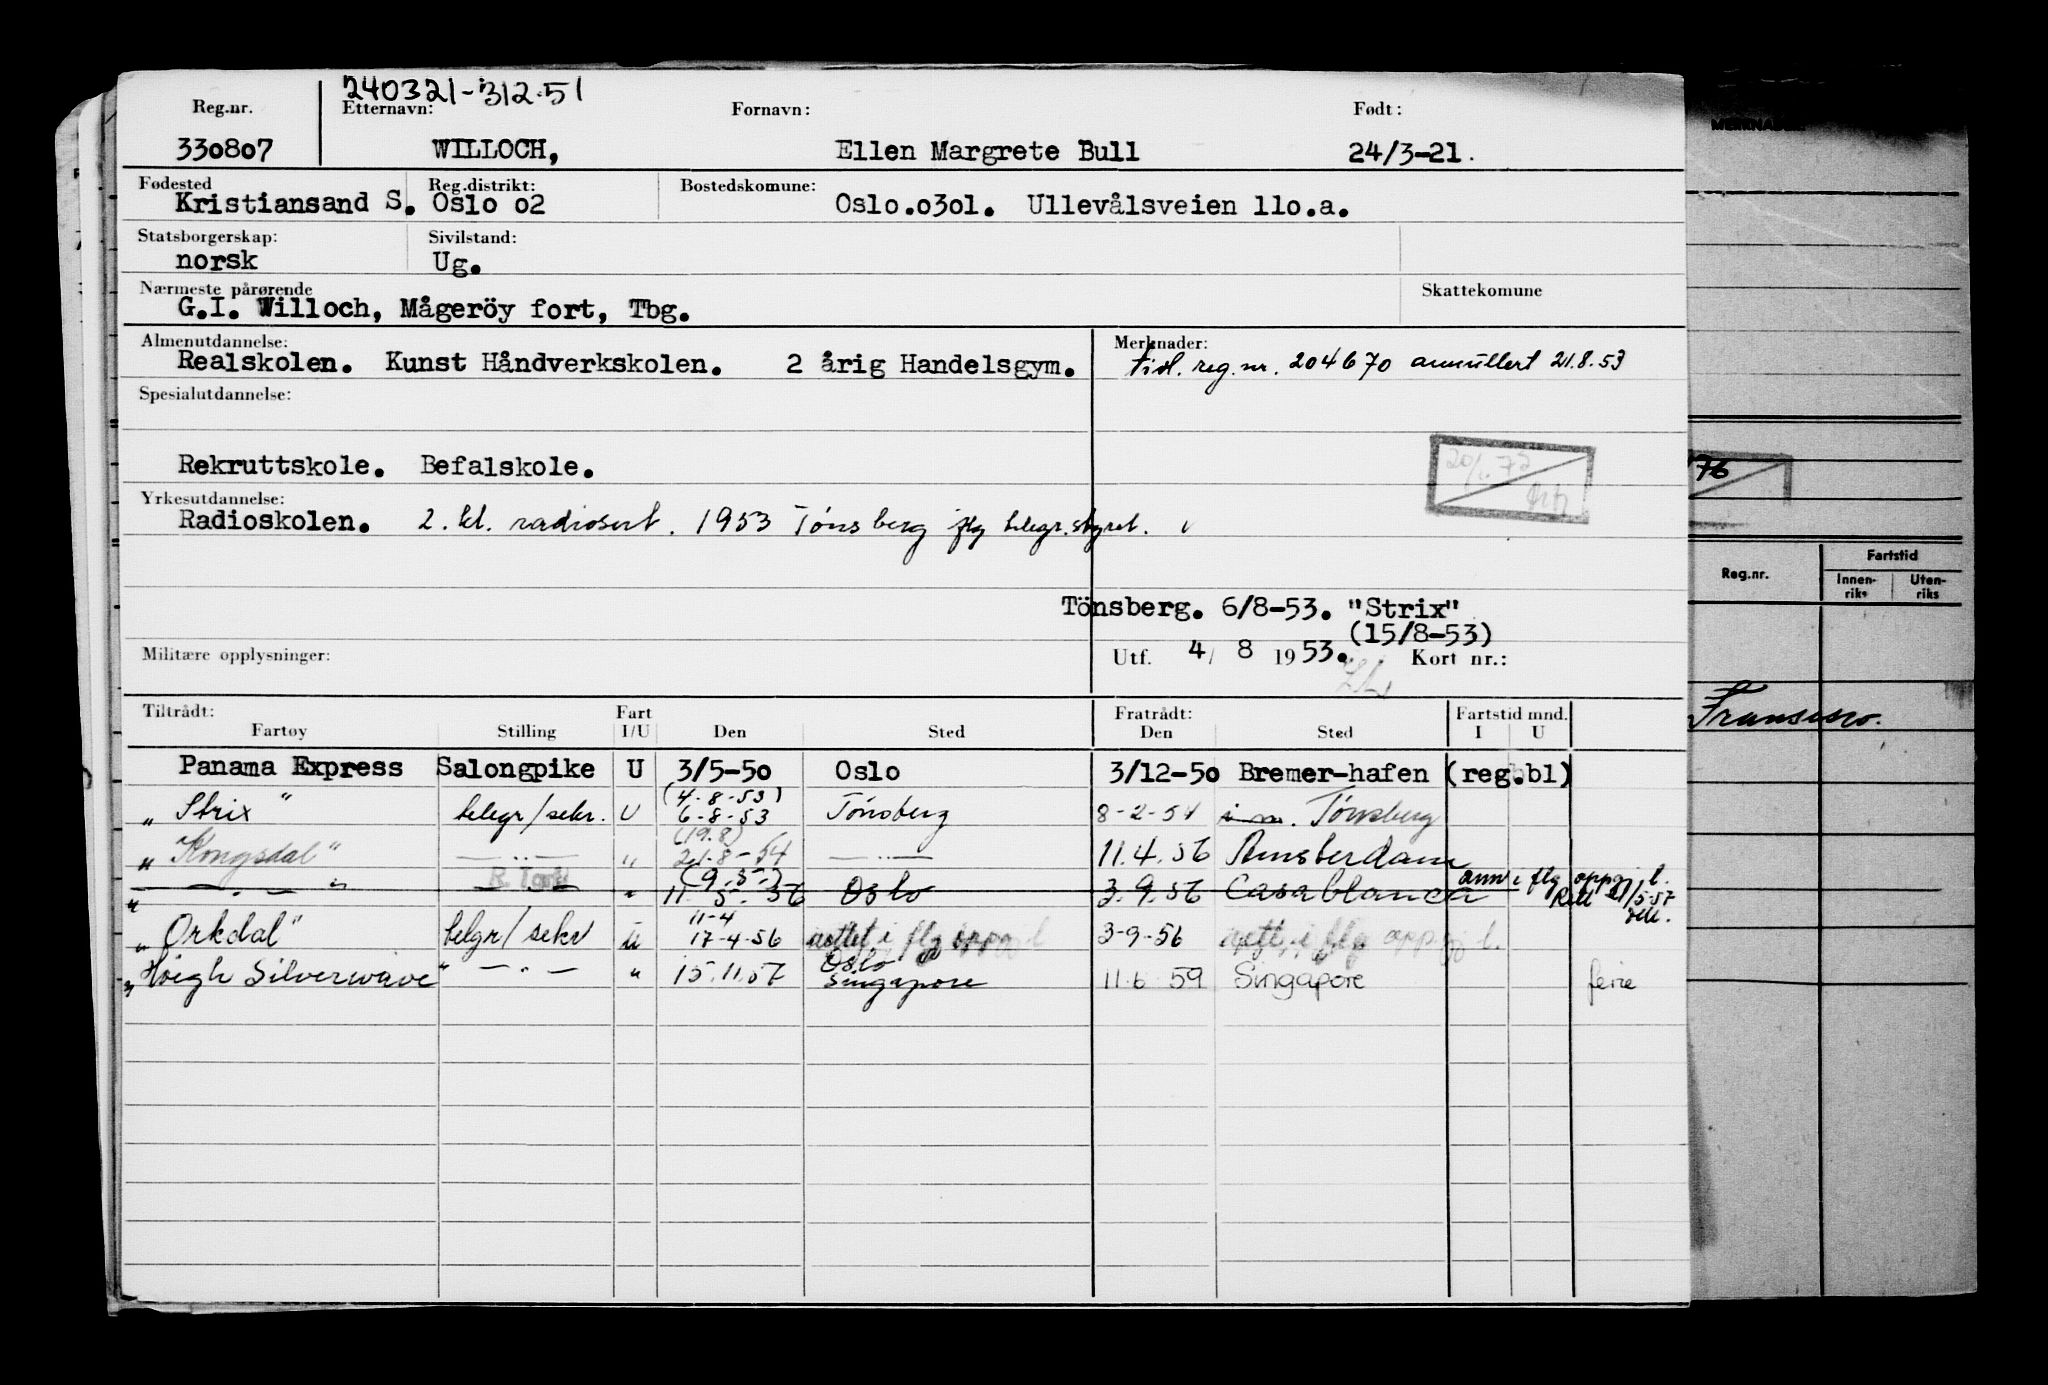 240321-312.51
Reg.nr. Etternavn: Fornavn: Født:
330807 WILLOCH, Ellen Margrete Bull 24/3-21.
Fødested Reg.distrikt: Bostedskomune:
Kristiansand S. Oslo 02 Oslo.0301. Ullevålsveien 110.a.
Statsborgerskap: Sivilstand:
norsk Ug.
Nærmeste pårørende Skattekomune
G.I. Willoch, Mågeröy fort, Tbg.
Almenutdannelse: Merknader:
Realskolen. Kunst Håndverkskolen. 2 årig Handelsgym. tidl. reg.nr. 204670 annullert 21.8.53
Spesialutdannelse:
Rekruttskole. Befalskole.
Yrkesutdannelse:
Radioskolen. 2. kl. radiosert. 1953 Tönsberg flg telegr.styret.
Tönsberg. 6/8-53. "Strix"
(15/8-53)
Militære opplysninger: Utf. 4/ 8 1953. Kort nr.:
Tiltrådt: Fart Fratrådt: Fartstid mnd.
Fartøy Stilling I/U Den Sted Den Sted I U
Panama Express Salongpike U 3/5-50 Oslo 3/12-50 Bremer-hafen (reg.bl)
(4-8-53)
„ Strix " telegr/sekr. U 6-8-53 Tönsberg 8-2-54 Tönsberg
(19.8)
„ Kongsdal " — „ — „ 21.8-54 — „ — 11.4.56 Amsterdam
(9.5.)
„ — „ — " „ 11-5-56 Oslo 3.9.56 Casablanca ann i flg oppg
11-4
„ Orkdal " telgr/sekr U 17-4-56 rettet i flg oppg 3-9-56 rett. i flg oppg
Oslo
„ Höegh Silverwave " — „ — „ 15.11.57 Singapore 11.6 59 Singapore ferie
MERKNADER
76
Reg.nr. Fartstid
Innen-
riks Uten-
riks
Fransisco.